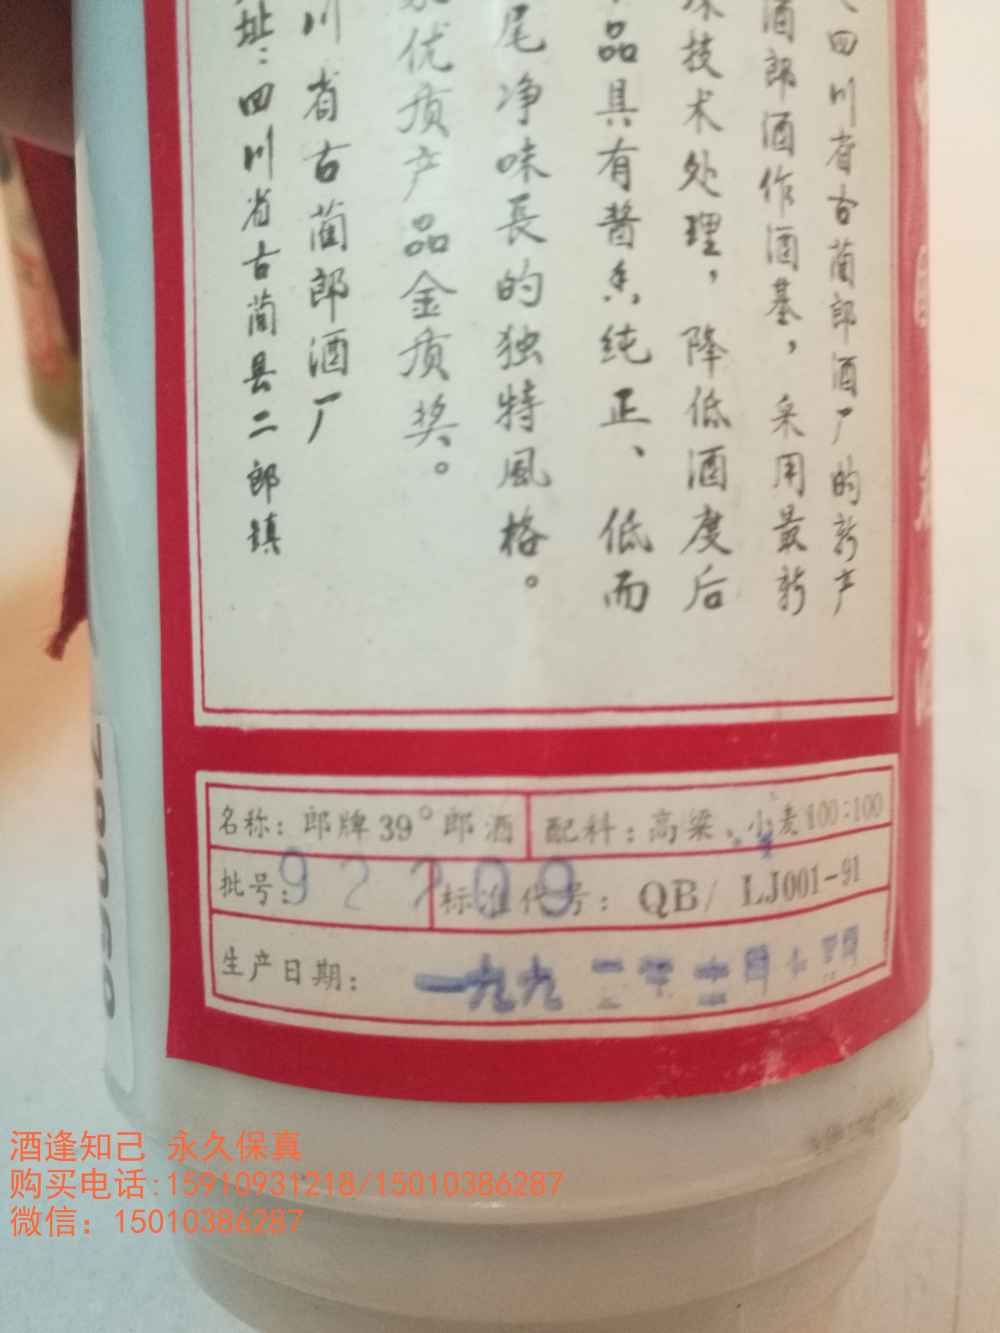 四川省古蔺郎酒厂的新产
酒郎酒作酒基，采用最新
技术处理，降低酒度后
品具有酱香纯正、低而
尾净味長的独特風格。
优质产品金质奖。
川省古蔺郎酒厂
址：四川省古蔺县二郎镇
名称：郎牌39°郎酒
配料：高粱、小麦100:100
批号：92 209
标准代号：QB/ LJ001-91
生产日期：一九九二年
酒逢知己 永久保真
购买电话:15910931218/15010386287
微信：15010386287